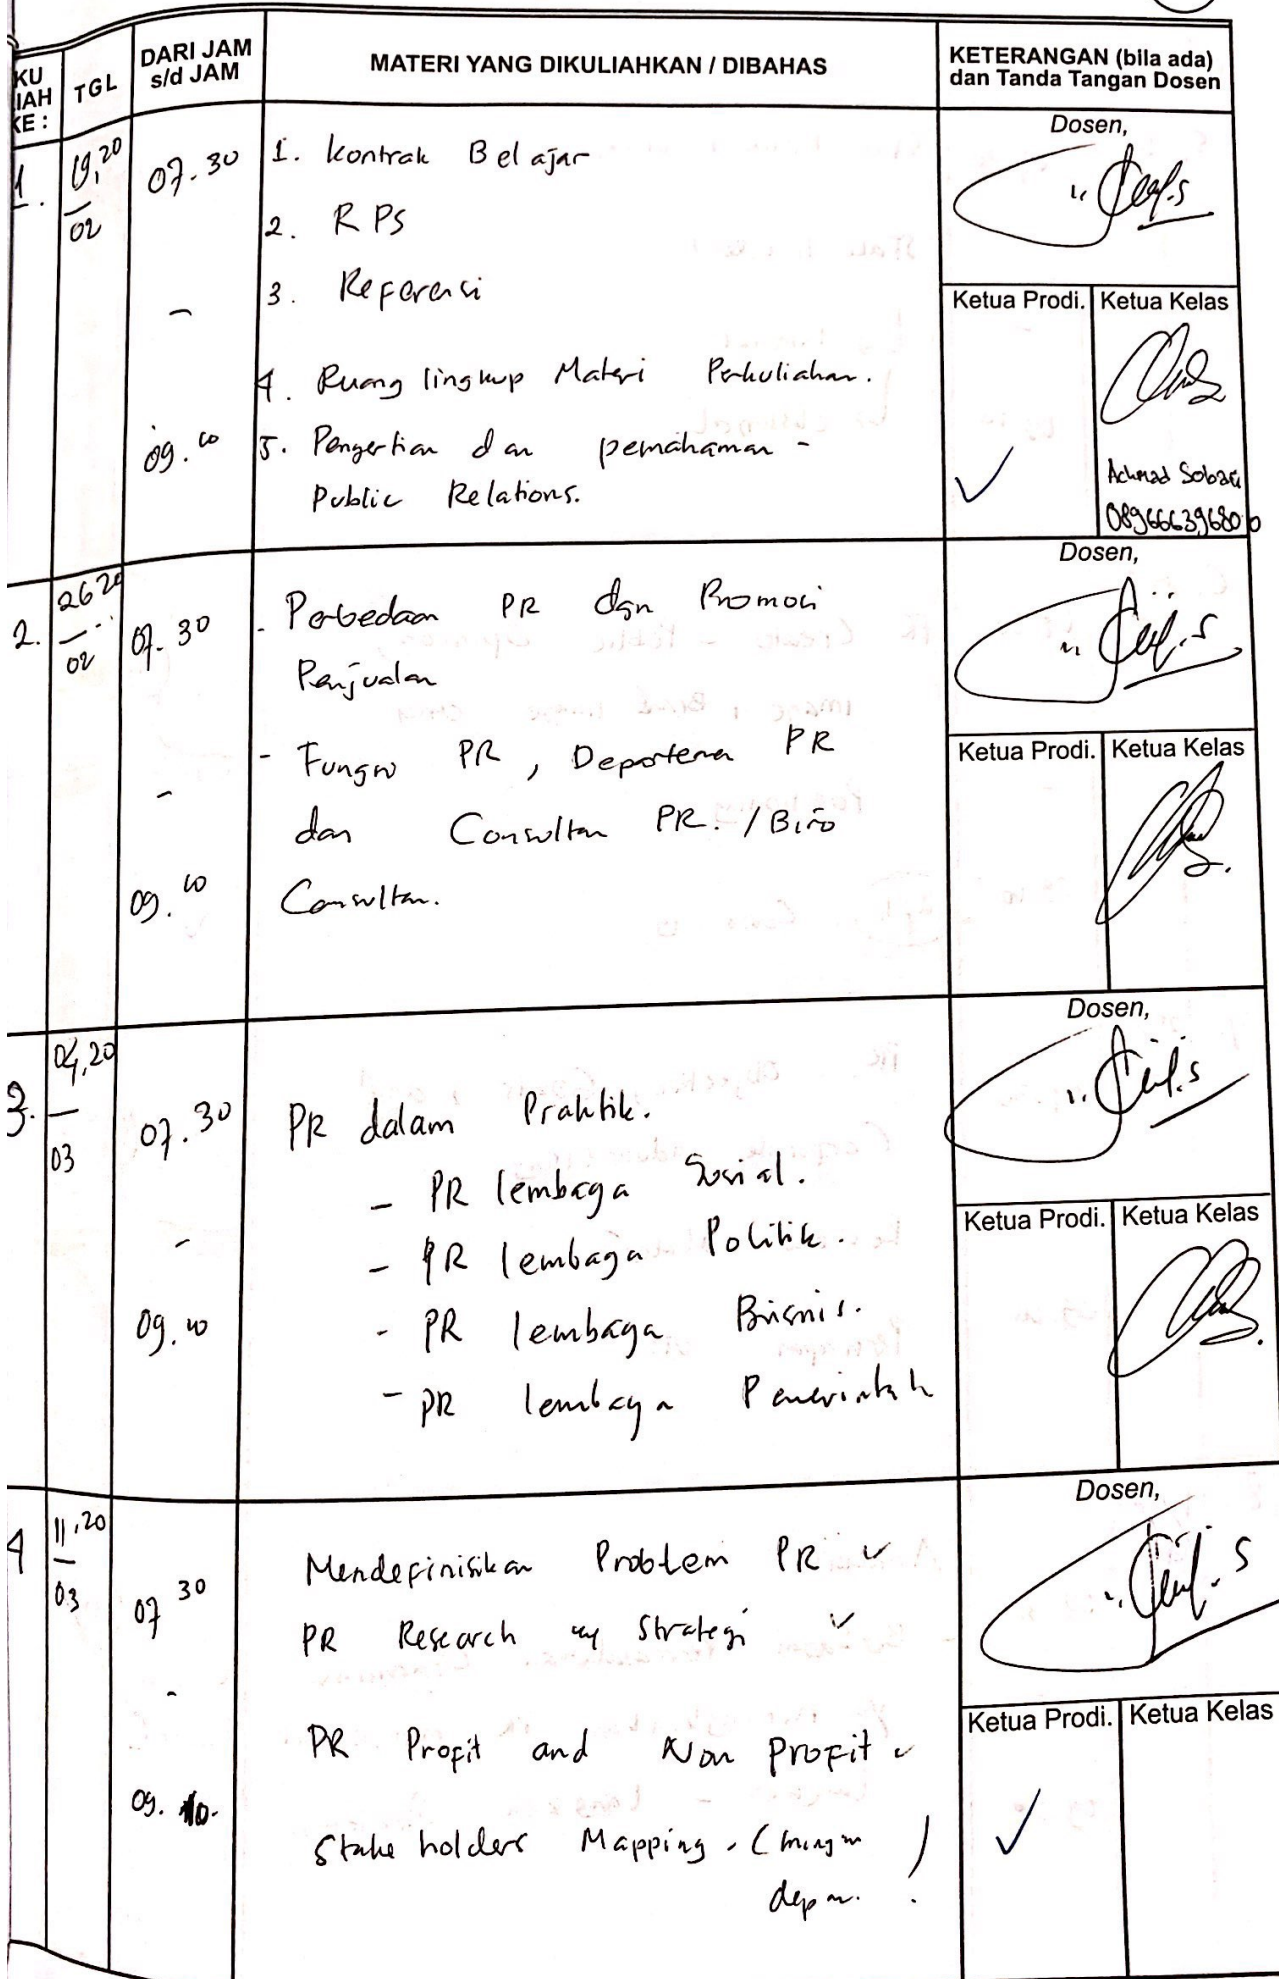 KU
IAH
KE :
TGL
DARI JAM
s/d JAM
MATERI YANG DIKULIAHKAN / DIBAHAS
KETERANGAN (bila ada)
dan Tanda Tangan Dosen
1.
19,20
02
07.30
-
09.10
1. Kontrak Belajar
2. RPS
3. Referensi
4. Ruang lingkup Materi Perkuliahan.
5. Pengertian dan pemahaman -
Public Relations.
Dosen,
Ketua Prodi.
Ketua Kelas
Achmad
2.
26 20
02
07.30
-
09.10
- Perbedaan PR dgn Promosi
Penjualan
- Fungsi PR, Departemen PR
dan Consultan PR. / Biro
Consultan.
Dosen,
Ketua Prodi.
Ketua Kelas
3.
04,20
03
07.30
-
09.10
PR dalam Praktik.
- PR lembaga Sosial.
- PR lembaga Politik.
- PR lembaga Bisnis.
- PR lembaga Pemerintah
Dosen,
Ketua Prodi.
Ketua Kelas
4
11,20
03
07 30
-
09. 10.
Mendefinisikan Problem PR ✓
PR Research Strategi ✓
PR Profit and Non Profit ✓
Stake holders Mapping. (minggu
depan. !)
Dosen,
Ketua Prodi.
Ketua Kelas